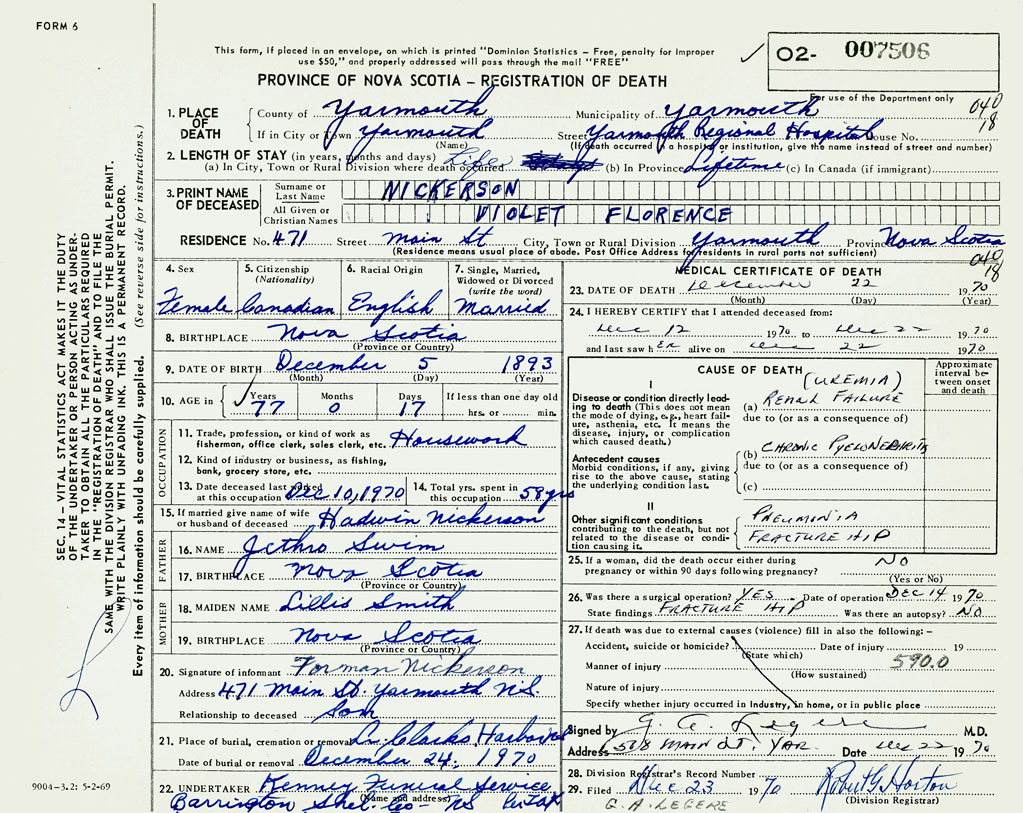 FORM 6
This form, if placed in an envelope, on which is printed "Dominion Statistics – Free, penalty for improper
use $50," and properly addressed will pass through the mail "FREE"
O2- 007506
PROVINCE OF NOVA SCOTIA – REGISTRATION OF DEATH
For use of the Department only
040
18
1. PLACE OF DEATH
County of Yarmouth Municipality of Yarmouth
If in City or Town Yarmouth Street Yarmouth Regional Hospital House No.
(Name) (If death occurred in a hospital or institution, give the name instead of street and number)
2. LENGTH OF STAY (in years, months and days)
(a) In City, Town or Rural Division where death occurred Life (b) In Province Lifetime (c) In Canada (if immigrant)
3. PRINT NAME OF DECEASED
Surname or Last Name NICKERSON
All Given or Christian Names VIOLET FLORENCE
RESIDENCE No. 471 Street Main St City, Town or Rural Division Yarmouth Province Nova Scotia
(Residence means usual place of abode. Post Office Address for residents in rural parts not sufficient)
040
18
4. Sex
Female
5. Citizenship (Nationality)
Canadian
6. Racial Origin
English
7. Single, Married, Widowed or Divorced (write the word)
Married
8. BIRTHPLACE Nova Scotia
(Province or Country)
9. DATE OF BIRTH December 5 1893
(Month) (Day) (Year)
10. AGE in Years 77 Months 0 Days 17 If less than one day old hrs. or min.
OCCUPATION
11. Trade, profession, or kind of work as
fisherman, office clerk, sales clerk, etc. Housework
12. Kind of industry or business, as fishing,
bank, grocery store, etc.
13. Date deceased last worked at this occupation Dec 10, 1970
14. Total yrs. spent in this occupation 58 yrs
15. If married give name of wife or husband of deceased Hadwin Nickerson
FATHER
16. NAME Jethro Swim
17. BIRTHPLACE Nova Scotia
(Province or Country)
MOTHER
18. MAIDEN NAME Lillis Smith
19. BIRTHPLACE Nova Scotia
(Province or Country)
20. Signature of informant Forman Nickerson
Address 471 Main St. Yarmouth N.S.
Relationship to deceased Son
21. Place of burial, cremation or removal Clarks Harbour
Date of burial or removal December 24, 1970
22. UNDERTAKER Kenney Funeral Service
(Name and address)
Barrington Shel. Co- NS
MEDICAL CERTIFICATE OF DEATH
23. DATE OF DEATH December 22 1970
(Month) (Day) (Year)
24. I HEREBY CERTIFY that I attended deceased from:
Dec 12 1970 to Dec 22 1970
and last saw hER alive on Dec 22 1970
CAUSE OF DEATH
Approximate interval between onset and death
I
Disease or condition directly lead-
ing to death (This does not mean
the mode of dying, e.g., heart fail-
ure, asthenia, etc. It means the
disease, injury, or complication
which caused death.)
(UREMIA)
(a) RENAL FAILURE
due to (or as a consequence of)
Antecedent causes
Morbid conditions, if any, giving
rise to the above cause, stating
the underlying condition last.
(b) CHRONIC PYELONEPHRITIS
due to (or as a consequence of)
(c)
II
Other significant conditions
contributing to the death, but not
related to the disease or condi-
tion causing it.
PNEUMONIA
FRACTURE HIP
25. If a woman, did the death occur either during
pregnancy or within 90 days following pregnancy? NO
(Yes or No)
26. Was there a surgical operation? YES Date of operation DEC 14 1970
State findings FRACTURE HIP Was there an autopsy? NO
27. If death was due to external causes (violence) fill in also the following: –
Accident, suicide or homicide? Date of injury 19
(State which)
590.0
Manner of injury
(How sustained)
Nature of injury
Specify whether injury occurred in industry, in home, or in public place
Signed by G. A. Legere M.D.
Address 518 MAIN ST. YAR. Date Dec 22 1970
28. Division Registrar's Record Number
29. Filed Dec 23 1970 Robert G Horton
(Division Registrar)
G. A. LEGERE
SEC. 14 – VITAL STATISTICS ACT MAKES IT THE DUTY
OF THE UNDERTAKER OR PERSON ACTING AS UNDER-
TAKER TO OBTAIN ALL THE PARTICULARS REQUIRED
IN THE "REGISTRATION OF DEATH" AND TO FILE THE
SAME WITH THE DIVISION REGISTRAR WHO SHALL ISSUE THE BURIAL PERMIT.
WRITE PLAINLY WITH UNFADING INK. THIS IS A PERMANENT RECORD.
Every item of information should be carefully supplied. (See reverse side for instructions.)
9004-3.2: 5-2-69